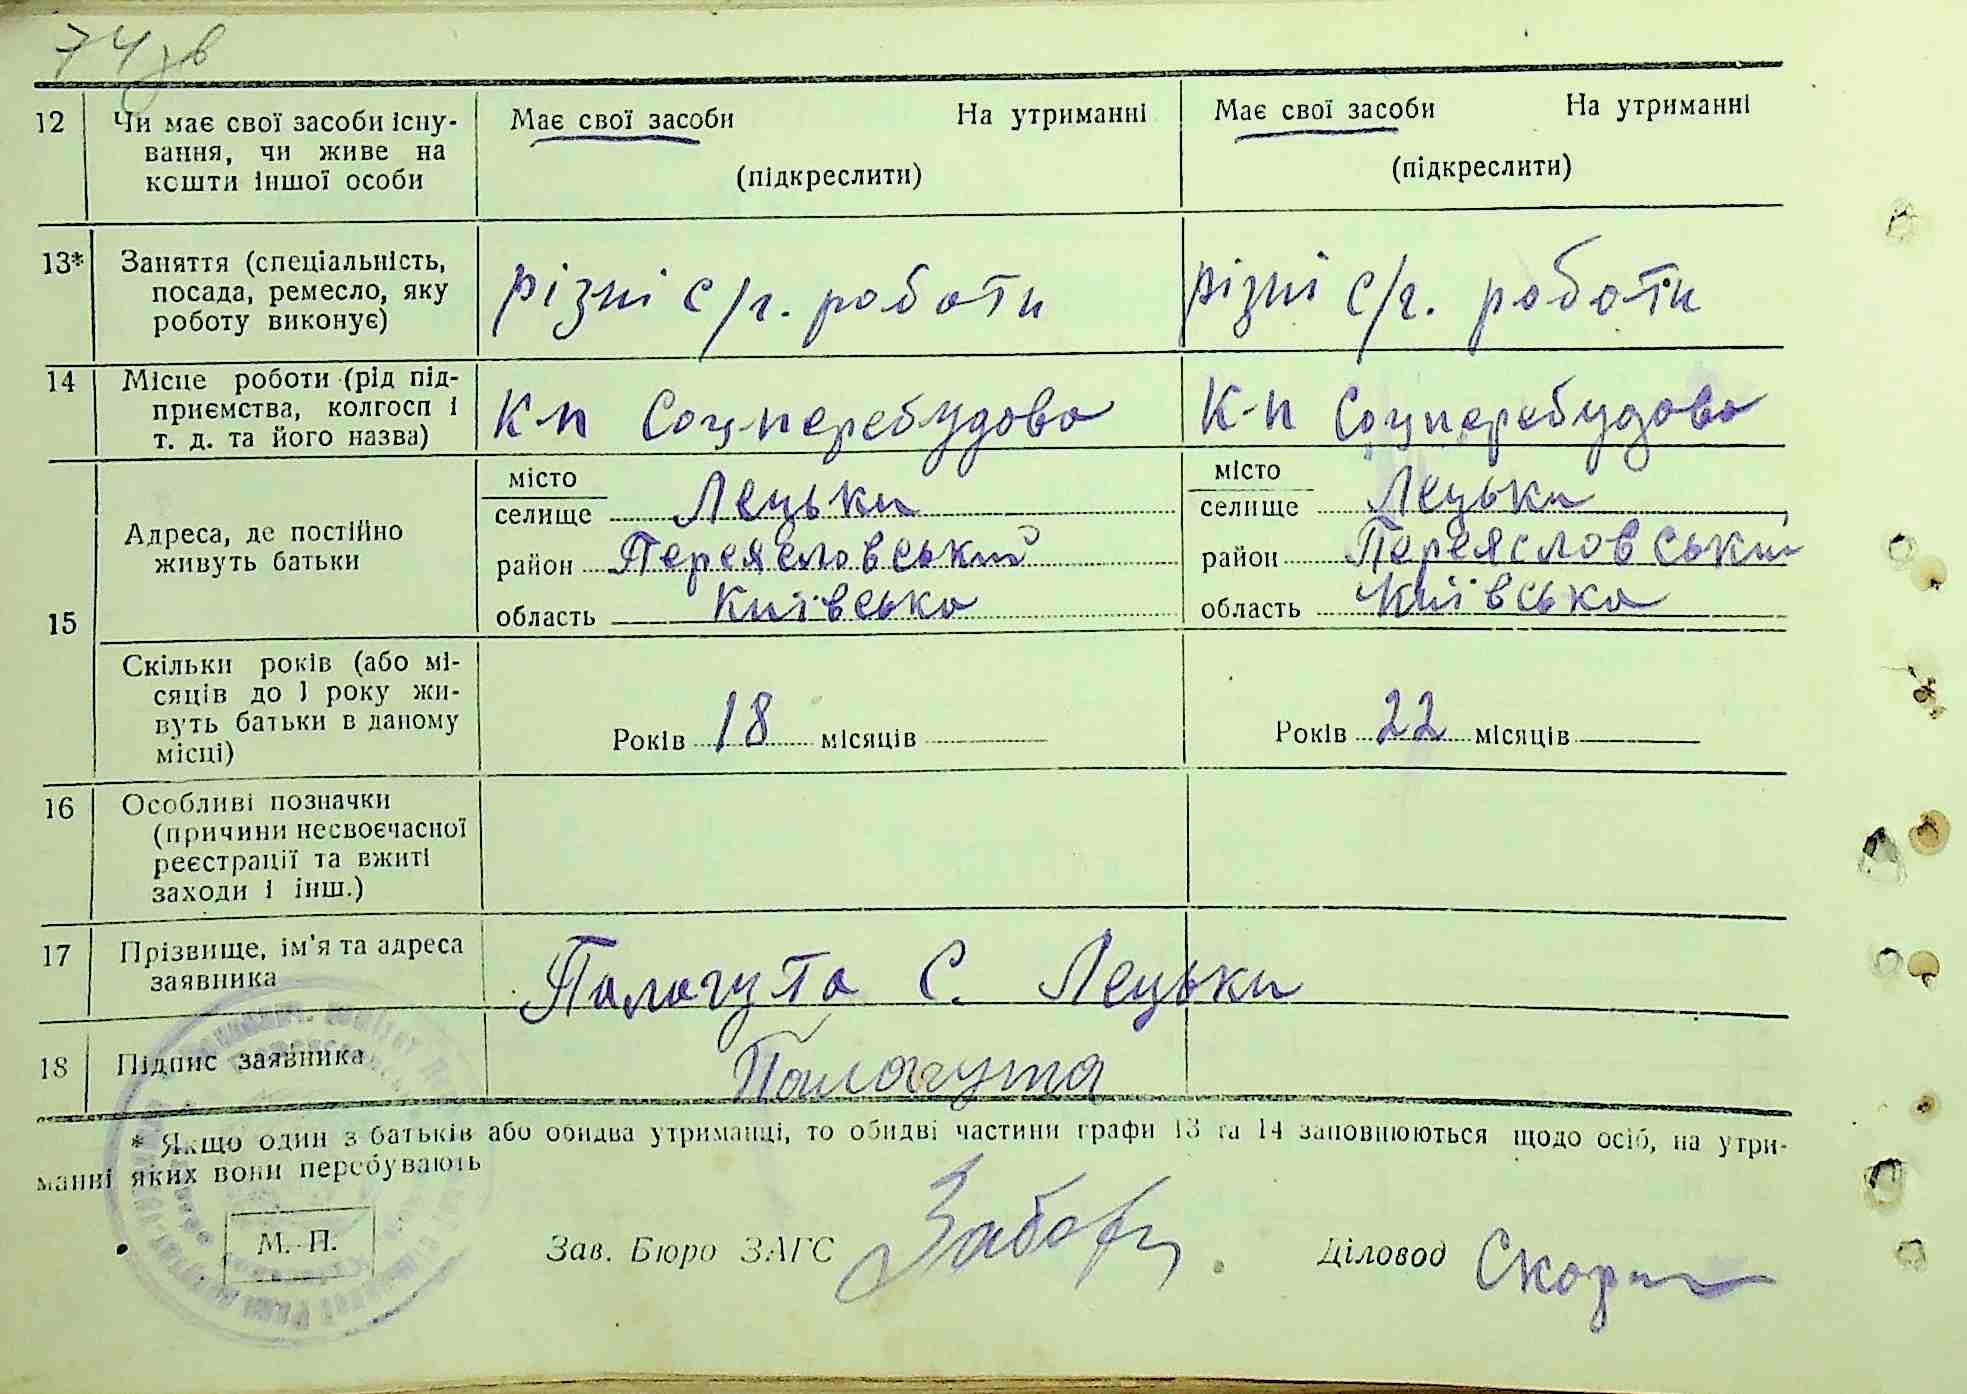 74 зв
12 Чи має свої засоби існу- Має свої засоби На утриманні Має свої засоби На утриманні
вання, чи живе на
кошти іншої особи (підкреслити) (підкреслити)
13* Заняття (спеціальність,
посада, ремесло, яку різні с/г. роботи різні с/г. роботи
роботу виконує)
14 Місце роботи (рід під-
приємства, колгосп і К-п Соцперебудова К-п Соцперебудова
т. д. та його назва)
15 Адреса, де постійно
живуть батьки
місто місто
селище Лецьки селище Лецьки
район Переясловський район Переясловський
область Київська область Київська
Скільки років (або мі-
сяців до 1 року жи-
вуть батьки в даному Років 18 місяців Років 22 місяців
місці)
16 Особливі позначки
(причини несвоєчасної
реєстрації та вжиті
заходи і інш.)
17 Прізвище, ім'я та адреса
заявника Палагута С. Лецьки
18 Підпис заявника Палагута
* Якщо один з батьків або обидва утриманці, то обидві частини графи 13 та 14 заповнюються щодо осіб, на утри-
манні яких вони перебувають
М. П.
Зав. Бюро ЗАГС Діловод